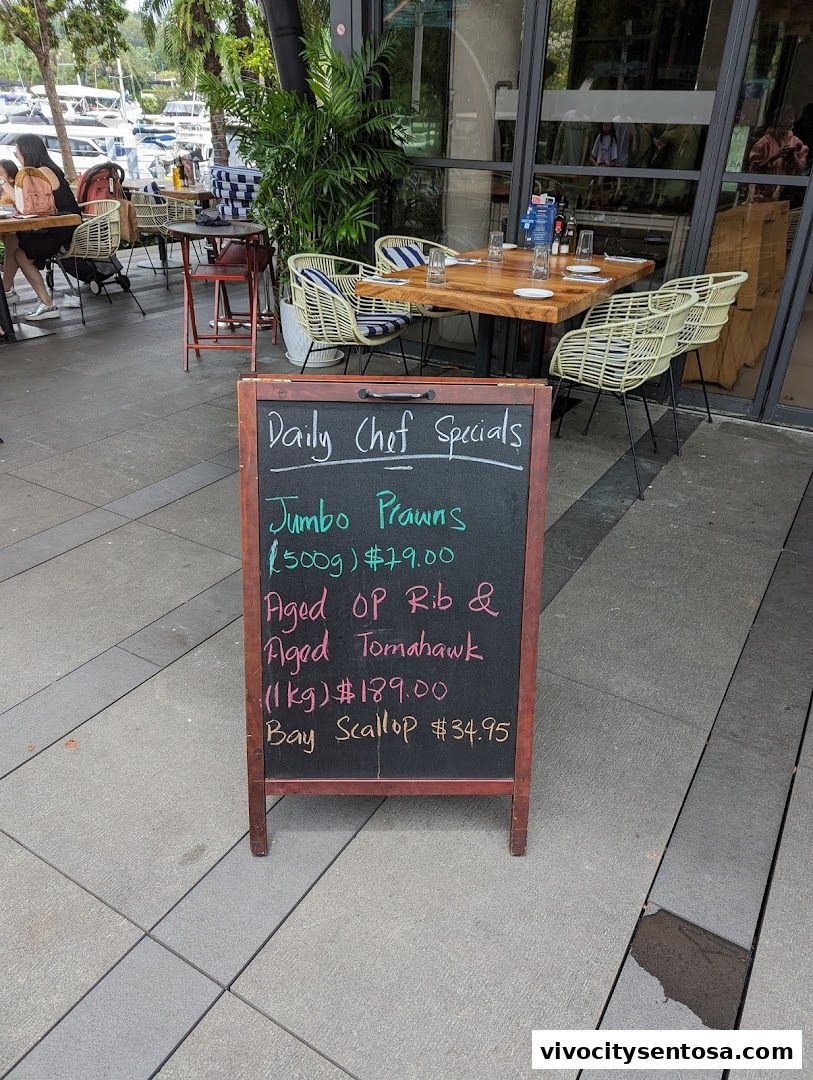 Daily Chef Specials
Jumbo Prawns
(500g) $79.00
Aged OP Rib &
Aged Tomahawk
(1kg) $189.00
Bay Scallop $34.95
vivocitysentosa.com